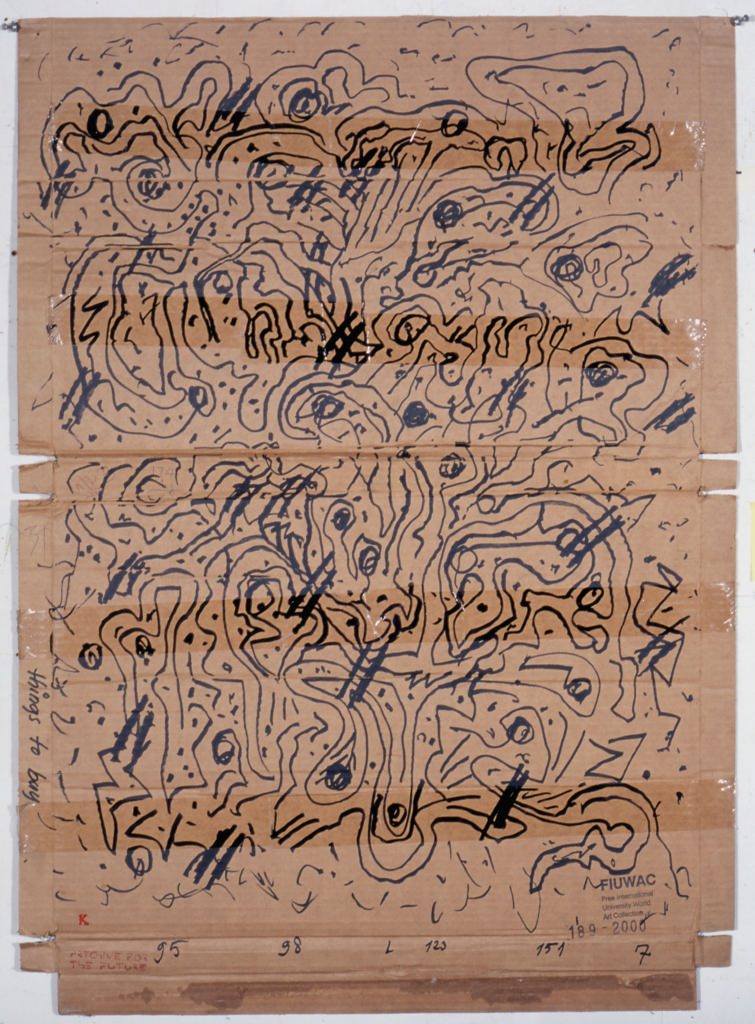 things to buy
FIUWAC
Free International
University World
Art Collection
189-2000
K
ARCHIVE FOR
THE FUTURE
95 98 L 123 151 7